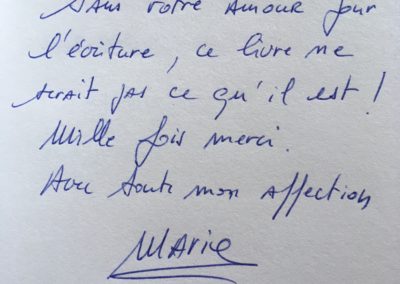 Sans votre amour pour
l'écriture, ce livre ne
serait pas ce qu'il est !
Mille fois merci.
Avec toute mon affection
Marie